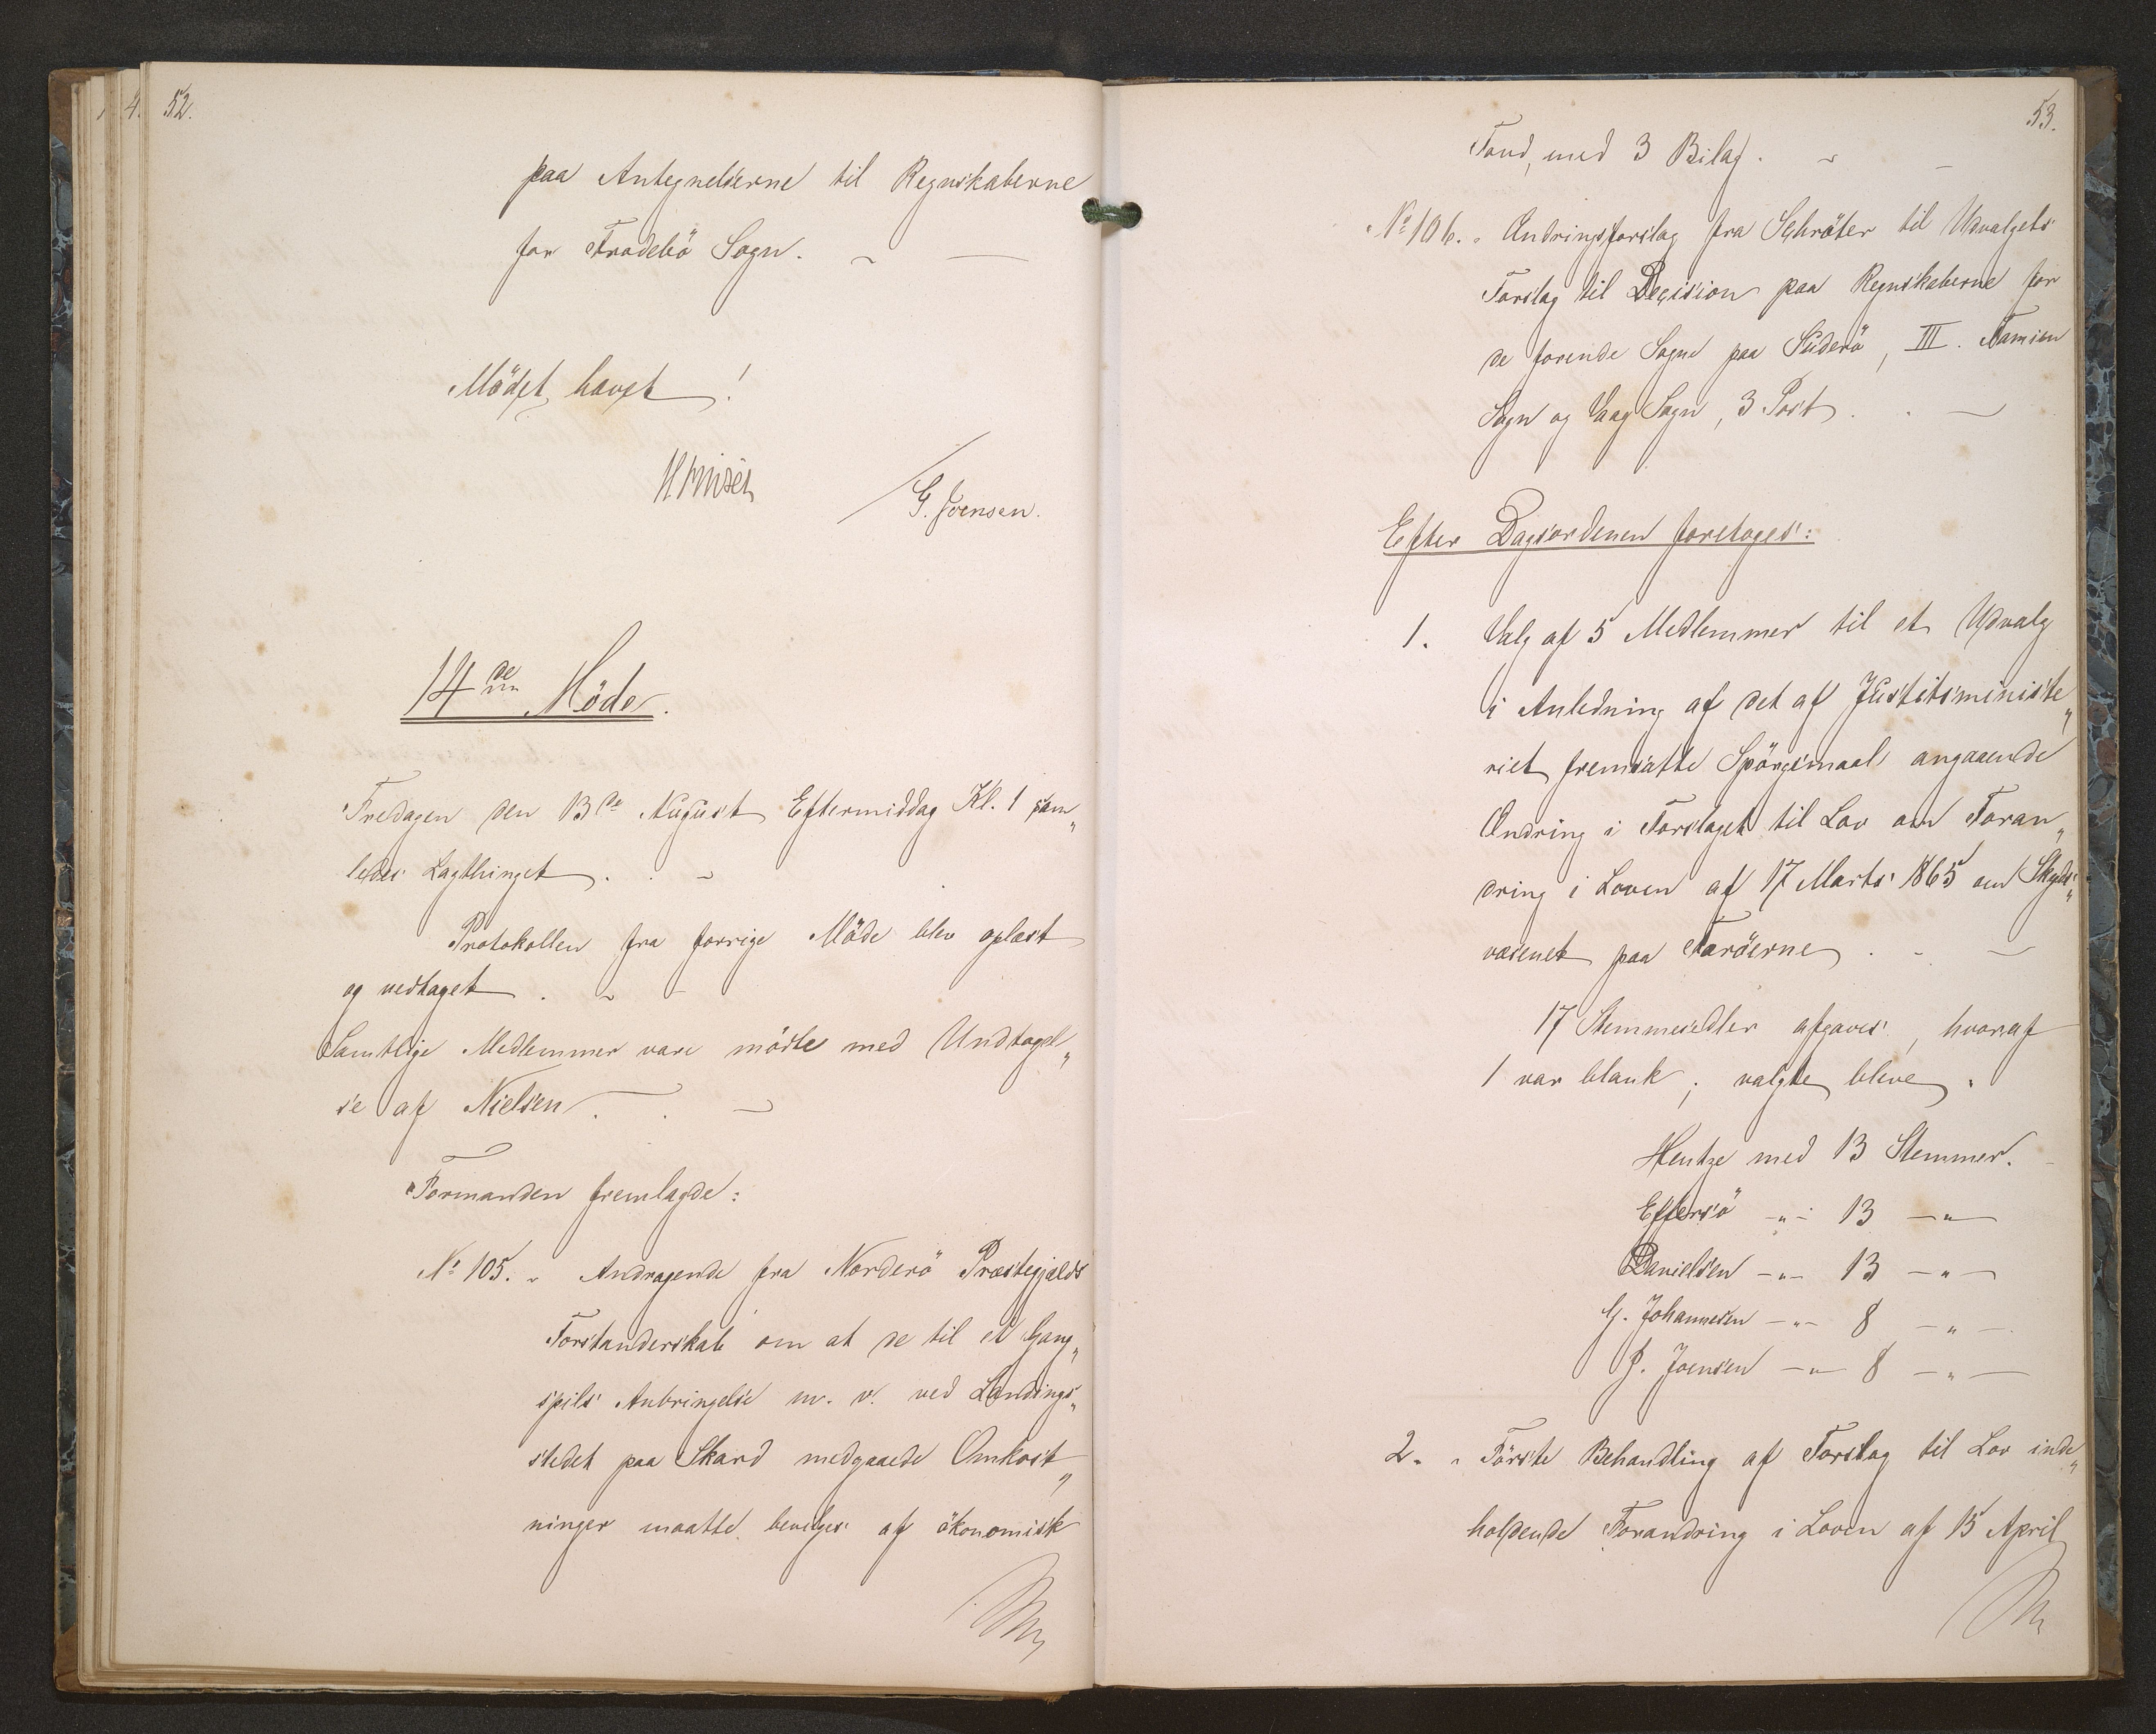 52.
paa Antegnelserne til Regnskaberne
for Fradebö Sogn.
Mödet hævet!
G. Joensen.
14de Möde.
Fredagen den 13de August Eftermiddag Kl. 1 sam„
ledes Lagthinget.
Protokollen fra forrige Möde blev oplæst
og vedtaget.
Samtlige Medlemmer vare mödte med Undtagel„
se af Nielsen.
Formanden fremlagde:
No 105. Andragende fra Norderö Præstegjelds
Forstanderskab om at de til et Gang„
spils Anbringelse m. v. ved Landings„
stedet paa Skard medgaaede Omkost„
ninger maatte bevilges af ökonomisk
53.
Fond, med 3 Bilag.
No 106. Ændringsforslag fra Schröter til Udvalgets
Forslag til Decision paa Regnskaberne for
de forende Sogne paa Suderö, III. Famien
Sogn og Vaag Sogn, 3 Post.
Efter Dagsordenen foretoges:
1. Valg af 5 Medlemmer til et Udvalg
i Anledning af det af Justitsministe„
riet fremsatte Spörgsmaal angaaende
Ændring i Forslaget til Lov om Foran„
dring i Loven af 17 Marts 1865 om Skyds„
væsenet paa Færöerne.
17 Stemmesedler afgaves, hvoraf
1 var blank; valgte bleve
Hentze med 13 Stemmer.
Effersö -„- 13 -„-
Danielsen -„- 13 -„-
G. Johannesen -„- 8 -„-
J. Joensen -„- 8 -„-
2. Förste Behandling af Forslag til Lov inde„
holdende Forandring i Loven af 15 April